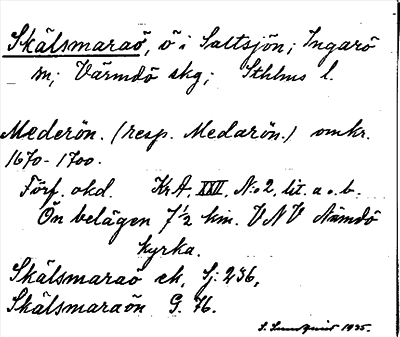 Skälsmaraö, ö i Saltsjön; Ingarö
m; Värmdö skg; Sthlms l.
Mederön. (resp. Medarön.) omkr.
1670-1700.
Förf. okd. KrA, XXII, N:o 2, lit. a o. b.
Ön belägen 7 1/2 km. VNV Nämdö
kyrka.
Skälsmaraö ek, Sj: 236,
Skälsmaraön G. 76.
S. Sundquist 1935.